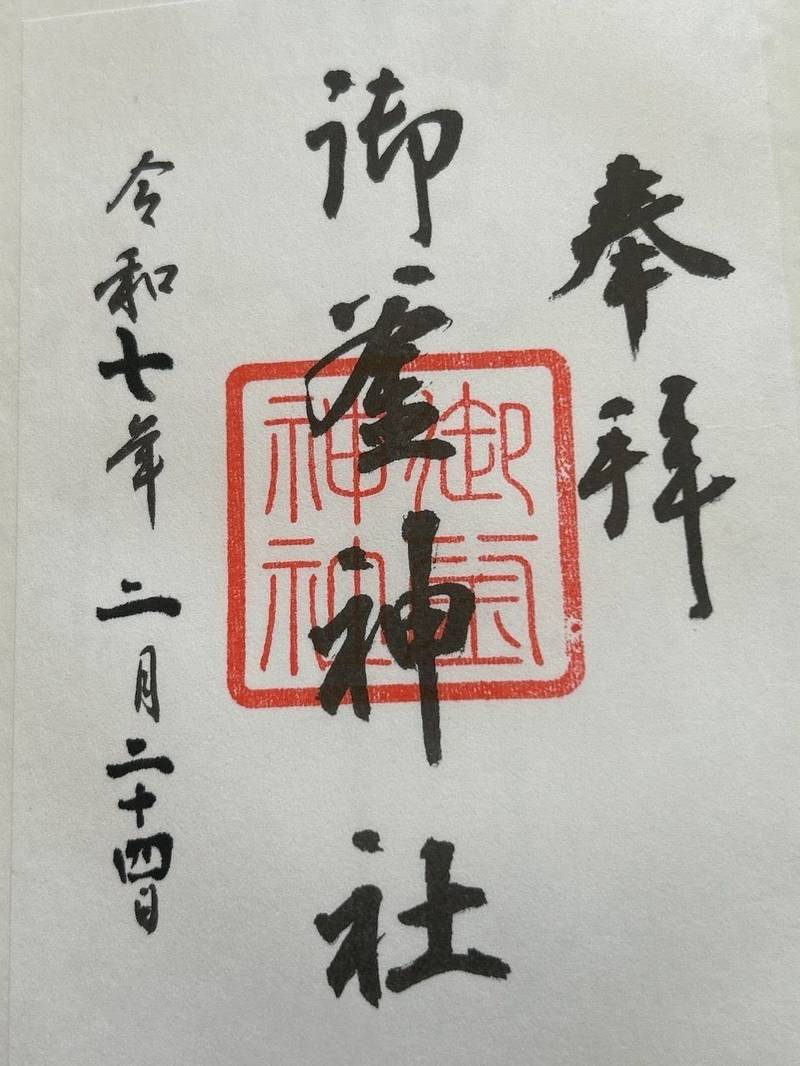 奉拝
御釜神社
御釜神社
令和七年二月二十四日